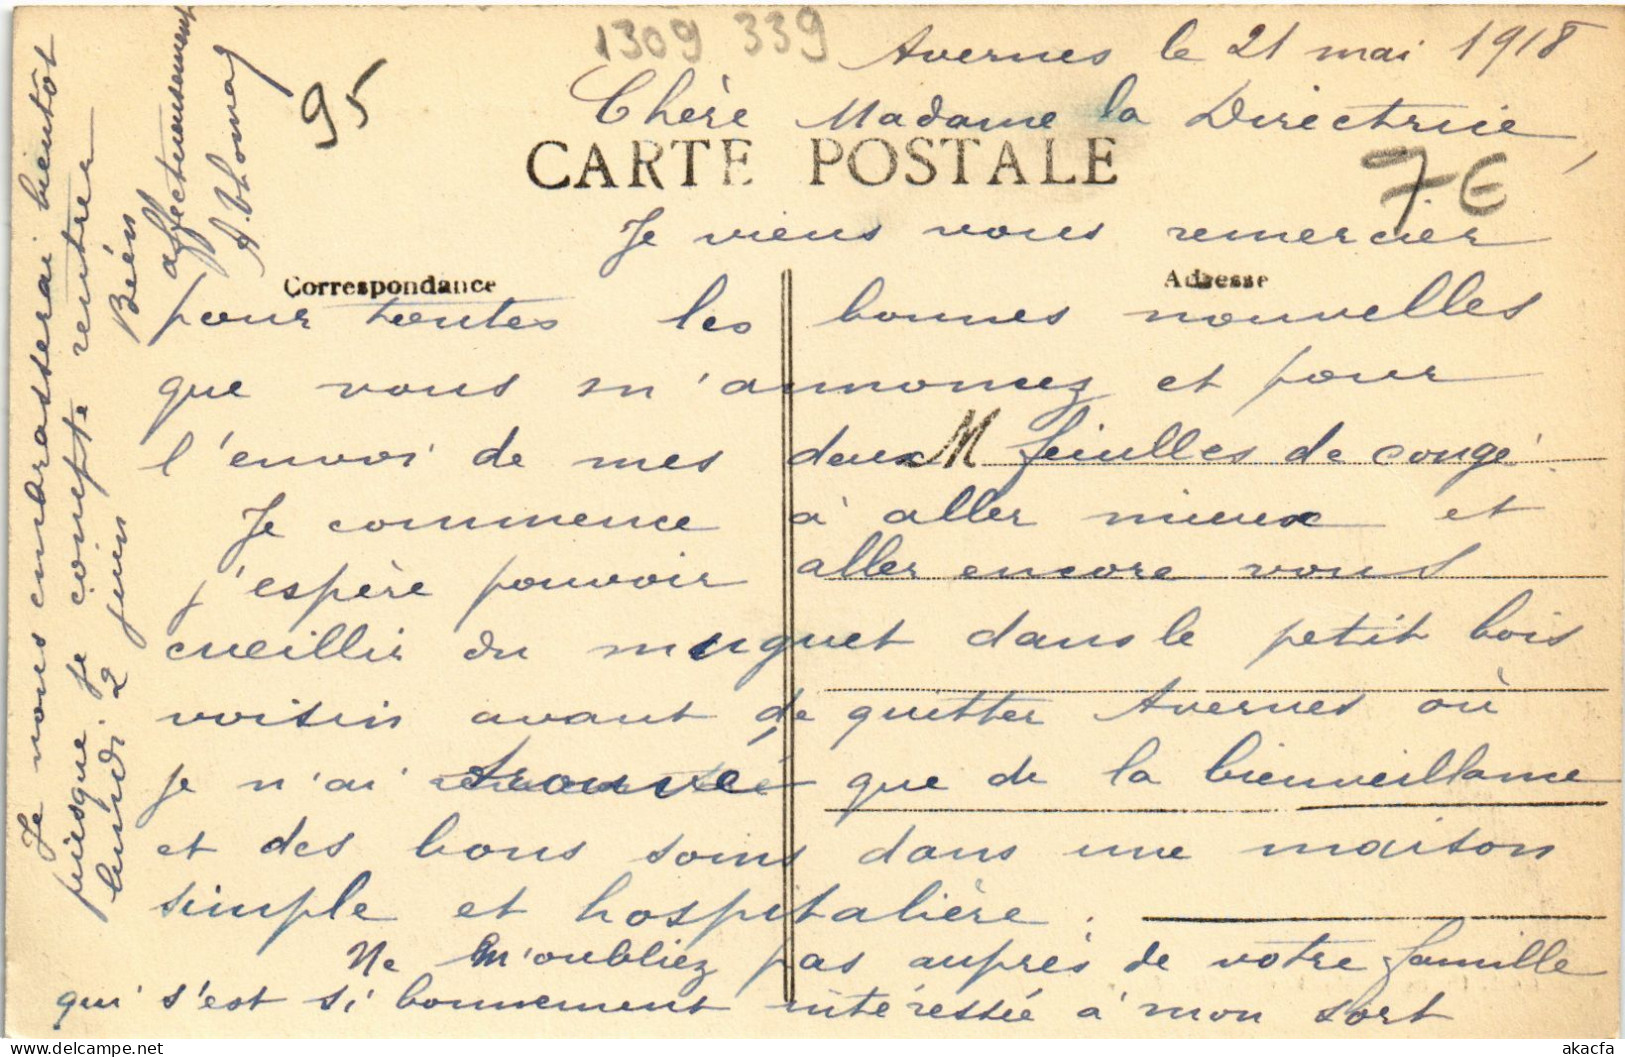 1309 339
95
Avernes le 21 mai 1918
Chère Madame la Directrice,
CARTE POSTALE
7. €
Je viens vous remercier
Correspondance
Adresse
pour toutes les bonnes nouvelles
que vous m'annoncez et pour
l'envoi de mes deux M feuilles de congé.
Je commence à aller mieux et
j'espère pouvoir aller encore vous
cueillir du muguet dans le petit bois
voisin avant de quitter Avernes où
je n'ai trouvé que de la bienveillance
et des bons soins dans une maison
simple et hospitalière.
Ne m'oubliez pas auprès de votre famille
qui s'est si bonnement intéressée à mon sort
Je vous embarasserai bientôt
puisque je compte rentrer
lundi 2 juin Bién
affectueusement
A. Thomas
akacfa